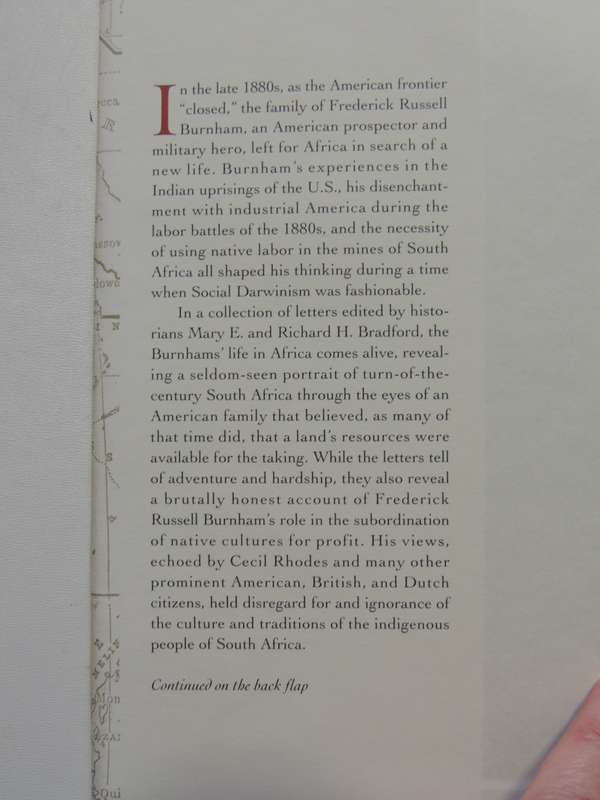 In the late 1880s, as the American frontier
“closed,” the family of Frederick Russell
Burnham, an American prospector and
military hero, left for Africa in search of a
new life. Burnham’s experiences in the
Indian uprisings of the U.S., his disenchant-
ment with industrial America during the
labor battles of the 1880s, and the necessity
of using native labor in the mines of South
Africa all shaped his thinking during a time
when Social Darwinism was fashionable.
In a collection of letters edited by histo-
rians Mary E. and Richard H. Bradford, the
Burnhams’ life in Africa comes alive, reveal-
ing a seldom-seen portrait of turn-of-the-
century South Africa through the eyes of an
American family that believed, as many of
that time did, that a land’s resources were
available for the taking. While the letters tell
of adventure and hardship, they also reveal
a brutally honest account of Frederick
Russell Burnham’s role in the subordination
of native cultures for profit. His views,
echoed by Cecil Rhodes and many other
prominent American, British, and Dutch
citizens, held disregard for and ignorance of
the culture and traditions of the indigenous
people of South Africa.
Continued on the back flap